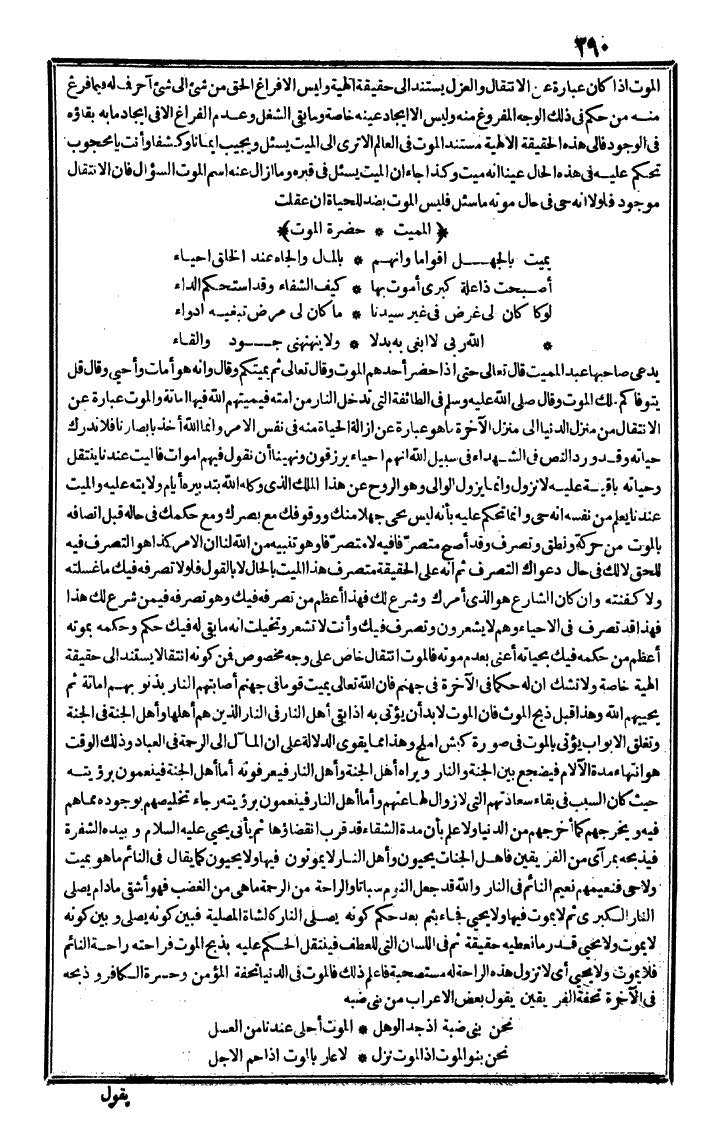 ٣٩٠
الموت اذا كان عبارة عن الانتقال والعزل يستند الى حقيقة الهية وليس الا فراغ الحق من شئ الى شئ آخر فله فيما فرغ
منه من حكم فى ذلك الوجه المفروغ منه وليس الا ايجاد عينه خاصة وما بقى الشغل وعدم الفراغ الا فى ايجاد ما به بقاؤه
فى الوجود فالى هذه الحقيقة الالهية مستند الموت فى العالم الاترى الى الميت يسئل ويجيب ايمانا وكشفا وأنت يا محجوب
تحكم عليه فى هذه الحال عينا انه ميت وكذا جاء ان الميت يسئل فى قبره وما زال عنه اسم الموت السؤال فان الانتقال
موجود فلولا انه حى فى حال موته ما سئل فليس الموت بضد للحياة ان عقلت
﴿المميت * حضرة الموت﴾
يميت بالجهل اقواما وانهم * بالمال والجاه عند الخلق احياء
أصبحت ذا علة كبرى أموت بها * كيف الشفاء وقد استحكم الداء
لو كان لى غرض فى غير سيدنا * ما كان لى مرض تبغيه ادواء
* الله ربى لا ابغى به بدلا * ولا ينهنهنى جود والقاء
يدعى صاحبها عبد المميت قال تعالى حتى اذا حضر أحدهم الموت وقال تعالى ثم يميتكم وقال وانه هو أمات وأحيى وقال قل
يتوفاكم ملك الموت وقال صلى الله عليه وسلم فى الطائفة التى تدخل النار من امته فيميتهم الله فيها اماتة والموت عبارة عن
الانتقال من منزل الدنيا الى منزل الآخرة ما هو عبارة عن ازالة الحياة منه فى نفس الامر وانما الله أخذ بابصارنا فلا ندرك
حياته وقد ورد النص فى الشهداء فى سبيل الله انهم احياء يرزقون ونهينا أن نقول فيهم اموات فالميت عندنا ينتقل
وحياته باقية عليه لا تزول وانما يزول الوالى وهو الروح عن هذا الملك الذى وكله الله بتدبيره أيام ولايته عليه والميت
عندنا يعلم من نفسه انه حى وانما تحكم عليه بأنه ليس بحى جهلا منك ووقوفك مع بصرك ومع حكمك فى حاله قبل اتصافه
بالموت من حركة ونطق وتصرف وقد أصبح متصرفا فيه لا متصرفا وهو تنبيه من الله لنا ان الامر كذا هو التصرف فيه
للحق لا لك فى حال دعواك التصرف ثم انه على الحقيقة متصرف هذا الميت بالحال لا بالقول فلولا تصرفه فيك ما غسلته
ولا كفنته وان كان الشارع هو الذى أمرك وشرع لك فهذا أعظم من تصرفه فيك وهو تصرفه فيمن شرع لك هذا
فهذا قد تصرف فى الاحياء وهم لا يشعرون وتصرف فيك وأنت لا تشعر وتخيلت انه ما بقى له فيك حكم وحكمه بموته
أعظم من حكمه فيك بحياته أعنى بعدم موته فالموت انتقال خاص على وجه مخصوص فمن كونه انتقالا يستند الى حقيقة
الهية خاصة ولا تشك ان له حكما فى الآخرة فى جهنم فان الله تعالى يميت قوما فى جهنم أصابتهم النار بذنوبهم اماتة ثم
يحييهم الله وهذا قبل ذبح الموت فان الموت لا بد أن يؤتى به اذا بقى أهل النار فى النار الذين هم أهلها وأهل الجنة فى الجنة
وتغلق الابواب يؤتى بالموت فى صورة كبش املح وهذا مما يقوى الدلالة على ان المآل الى الرحمة فى العباد وذلك الوقت
هو انتهاء مدة الآلام فيضجع بين الجنة والنار ويراه أهل الجنة وأهل النار فيعرفونه أما أهل الجنة فينعمون برؤيته
حيث كان السبب فى بقاء سعادتهم التى لا زوال لها عنهم وأما أهل النار فينعمون برؤيته رجاء تخليصهم بوجوده مما هم
فيه ويخرجهم كما أخرجهم من الدنيا ولا علم بأن مدة الشقاء قد قرب انقضاؤها ثم يأتى يحيى عليه السلام وبيده الشفرة
فيذبحه بمرآى من الفريقين فاهل الجنات يحيون وأهل النار لا يموتون فيها ولا يحيون كما يقال فى النائم ما هو بميت
ولا حى فنعيمهم نعيم النائم فى النار والله قد جعل النوم سباتا والراحة من الرحمة ما هى من الغضب فهو أشقى مادام يصلى
النار الكبرى ثم لا يموت فيها ولا يحيى فجاء بثم بعد حكم كونه يصلى النار كالشاة المصلية فبين كونه يصلى وبين كونه
لا يموت ولا يحيى قدر ما تعطيه حقيقة ثم فى اللسان التى للعطف فينتقل الحكم عليه بذبح الموت فراحته راحة النائم
فلا يموت ولا يحيى أى لا تزول هذه الراحة له مستصحبة فاعلم ذلك فالموت فى الدنيا تحفة المؤمن وحسرة الكافر وذبحه
فى الآخرة تحفة الفريقين يقول بعض الاعراب من بنى ضبه
نحن بنى ضبة اذ جد الوهل * الموت أحلى عندنا من العسل
نحن بنو الموت اذا الموت نزل * لا عار بالموت اذا حم الاجل
يقول